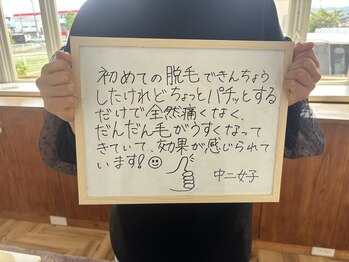 初めての脱毛できんちょう
したけれどちょっとパチッとする
だけで全然痛くなく、
だんだん毛がうすくなって
きていて、効果が感じられて
います!
中二女子